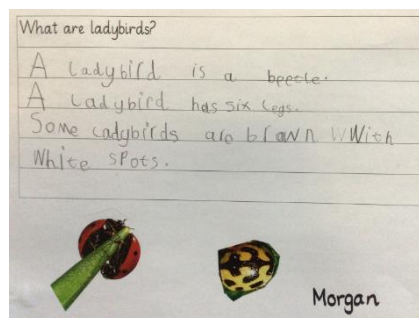 What are ladybirds?
A ladybird is a beetle.
A ladybird has six legs.
Some ladybirds are brawn wwith
white spots.
Morgan